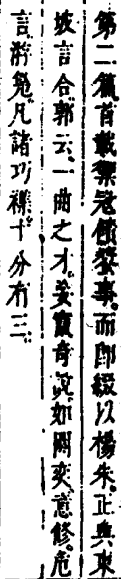 第二篇首載禦寇饋漿事而即綴以楊朱正與東
坡言合郭云一曲之才妄竄奇説如閼奕意修危
言游鳧凡諸巧襍十分有三